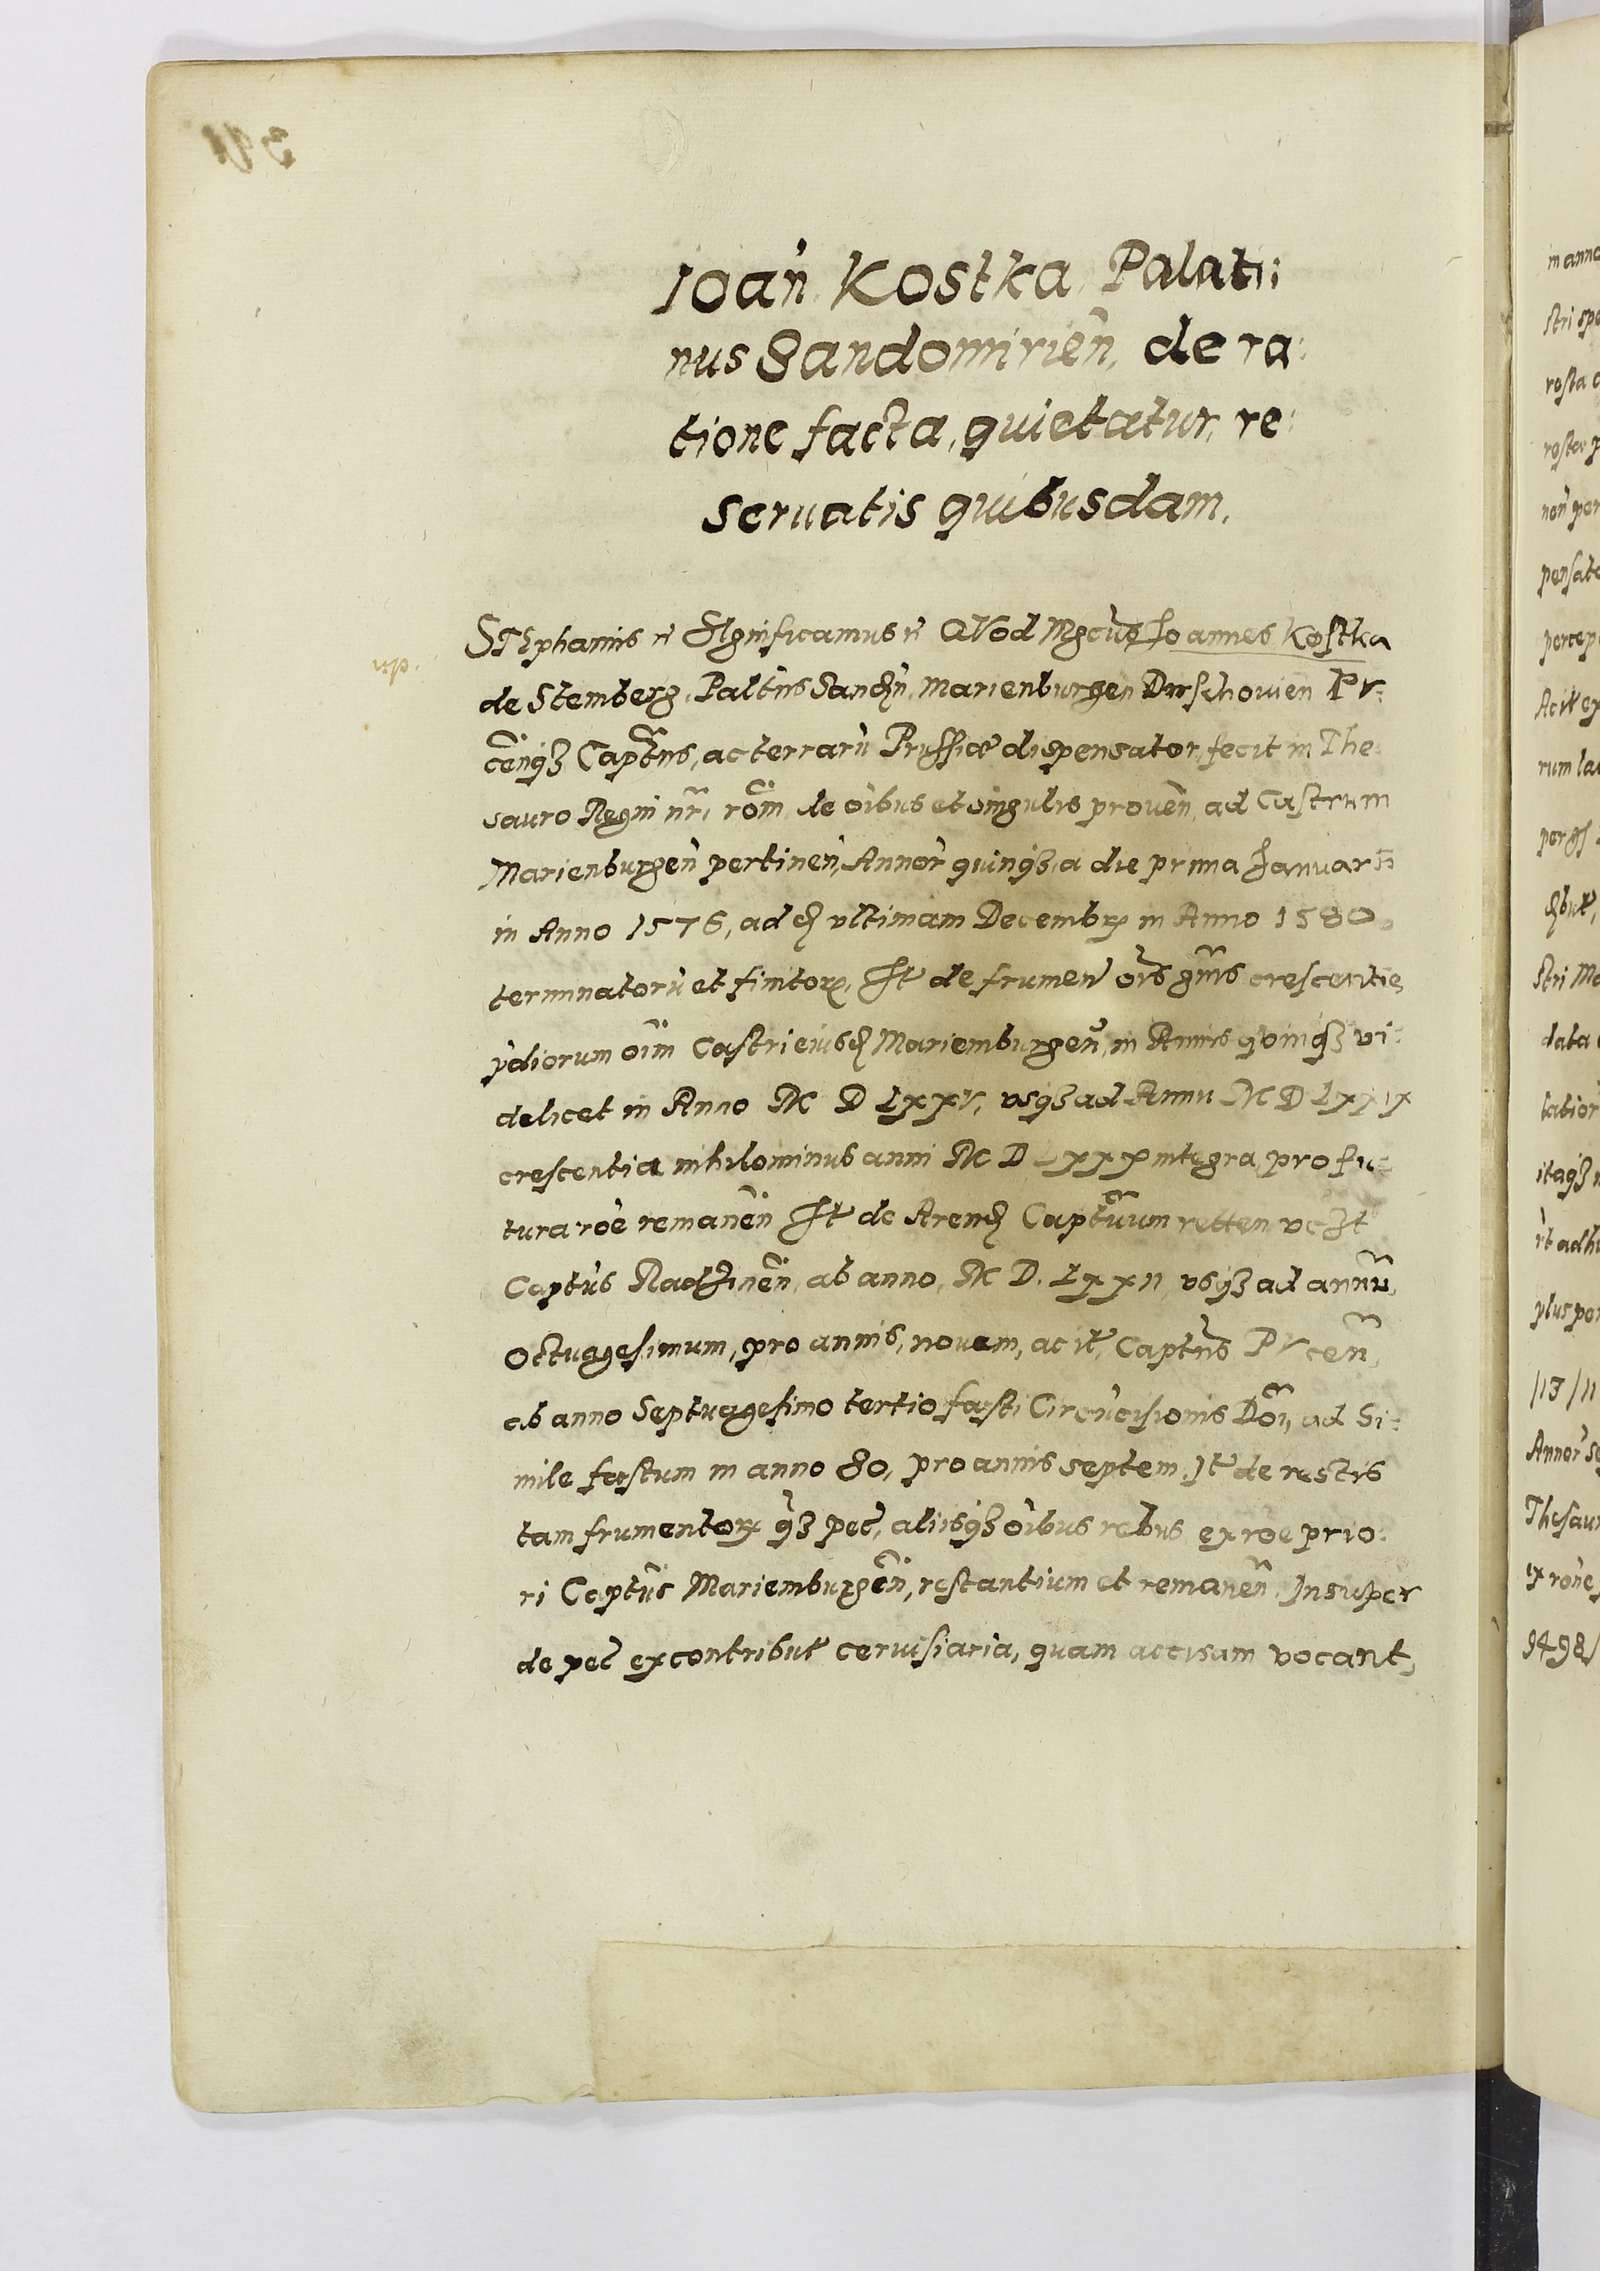 Ioan̄ Kostka Palati:
nus Sandomirien̄, de ra:
tione facta, quietatur, re:
seruatis quibusdam.
STEphanus r̄ SIgnificamus r̄ QVod Mgcus Joannes Kostka
de Stemberg, Palt̄ns Sand̄n, Marienburgen̄ Dirschouien̄ Pv:
cēnqȝ Capt̄ns, ac terrarū Prussiæ dispensator, fecit in The:
sauro Regni nr̄i rōm de oībus et singulis prouen̄, ad Castrum
Marienburgen̄ pertinen̄, Annor̄ quinqȝ, a die prima Januarii
in Anno 1576, ad ultimam Decembrꝭ in Anno 1580
terminatorū et finitorꝝ, It̄ de frumen̄ oīs gn̄ris crescentie
p̄diorum oīm Castri eiusd Mariemburgen̄, in Annis quinqȝ vi:
delicet in Anno M D Lxxv, vsqȝ ad Annū M D Lxxix
crescentia nihilominus anni M D Lxxx integra, pro fu:
tura rōe remanēn It̄ de Arend Capt̄uum retten
Capt̄us Radzinēn, ab anno, M D. Lxxii, vsqȝ ad annū,
Octuagesimum, pro annis, nouem, ac it̄, Capt̄us Pvcēn,
ab anno Septuagesimo tertio fæsti Circūcisionis Dōi, ad Si:
mile fæstum in anno 80, pro annis septem. It̄ de restis
tam frumentorꝝ qȝ pec̄, aliisqȝ oībus rebus ex rōe prio:
ri Capt̄us Mariemburgēn, restantium et remanēn, Insuper
de pec̄ ex contribut̄ ceruisiaria, quam accisam vocant,
in anno
Stri spe
non per
pensat
percep
Ac it ex
rum la
Stri Ma
data
itaqȝ
plus per
Thesaur
9498